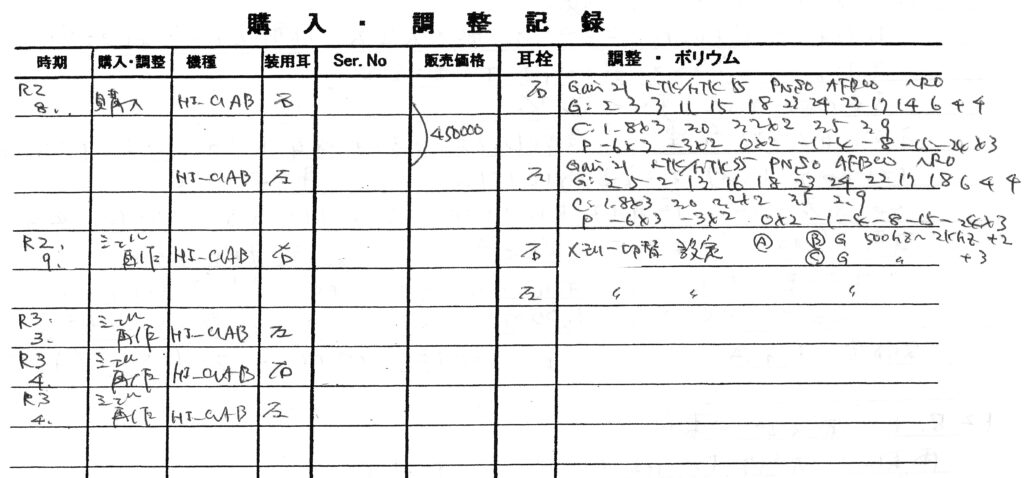 購入・調整記録
時期 購入・調整 機種 装用耳 Ser.No 販売価格 耳栓 調整・ボリウム
R2 8. 購入 HI-C1AB 右 右 Gain 21 LTK/HTK 55 PN,SO AFBCO NRO
G: 2 3 3 11 15 18 23 24 22 19 14 6 4 4
450000 C: 1.8×3 2.0 2.2×2 2.5 2.9
P -6×3 -3×2 0×2 -1 -4 -8 -15 -24×3
HI-C1AB 左 左 Gain 21 LTK/HTK 55 PN,SO AFBCO NRO
G: 2 5 2 13 16 18 23 24 22 19 18 6 4 4
C: 1.8×3 2.0 2.2×2 2.5 2.9
P -6×3 -3×2 0×2 -1 -4 -8 -15 -24×3
R2. 9. 再作 HI-C1AB 右 右 メモリー切替 設定 Ⓐ Ⓑ G 500hz~2khz +2
Ⓒ G 〃 +3
左 〃 〃 〃
R3. 3. 再作 HI-C1AB 左
R3 4. 再作 HI-C1AB 右
R3 4. 再作 HI-C1AB 左